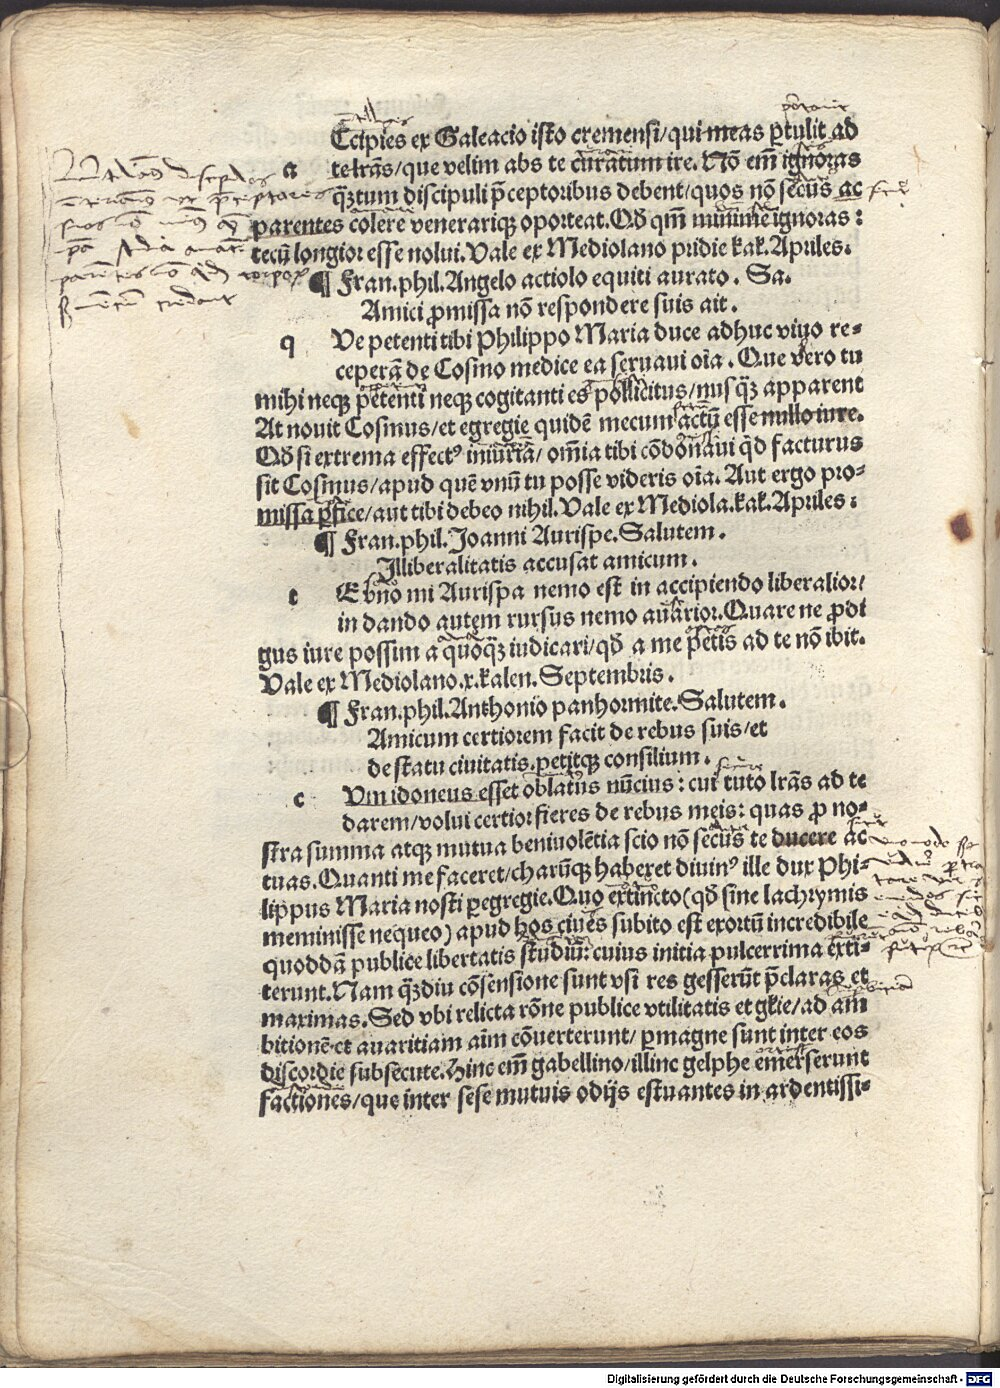 a Ccipies ex Galeacio isto cremensi/qui meas ꝑtulit ad
te lr̄as/que velim abs te curatum ire. Nō em̄ ignoras
qꝫtum discipuli p̄ceptoribus debent/quos nō secus ac
parentes colere venerariqꝫ oporteat. Qđ qm̄ minime ignoras:
tecū longior esse nolui. Vale ex Mediolano pridie kak. Apriles.
¶ Fran. phil. Angelo actiolo equiti aurato. Sa.
Amici ꝓmissa nō respondere suis ait.
q Ve petenti tibi Philippo Maria duce adhuc viuo re-
ceperā de Cosmo medice ea seruaui oīa. Que vero tu
mihi neqꝫ petenti neqꝫ cogitanti es pollicitus/nusqꝫ apparent
At nouit Cosmus/et egregie quidē mecum actū esse nullo iure.
Qđ si extrema effectꝰ iniuria/ om̄ia tibi cōdonaui qđ facturus
sit Cosmus/apud quē vnū tu posse videris oīa. Aut ergo pro-
missa ꝑfice/aut tibi debeo nihil. Vale ex Mediola. kak. Apriles:
¶ Fran. phil. Joanni Aurispe. Salutem.
Illiberalitatis accusat amicum.
t E bn̄o mi Aurispa nemo est in accipiendo liberalior/
in dando autem rursus nemo auarior. Quare ne ꝓdi
gus iure possim a quoqꝫ iudicari/qđ a me petis ad te nō ibit.
Vale ex Mediolano. x. kalen. Septembris.
¶ Fran. phil. Anthonio panhormite. Salutem.
Amicum certiorem facit de rebus suis/et
de statu ciuitatis. petitqꝫ consilium.
c Vm idoneus esset oblatus nūcius: cui tuto lr̄as ad te
darem/volui certior fieres de rebus meis: quas ꝓ no-
stra summa atqꝫ mutua beniuolētia scio nō secus te ducere ac
tuas. Quanti me faceret/charūqꝫ haberet diuinꝰ ille dux Phi-
lippus Maria nosti ꝑegregie. Quo extincto (qđ sine lachrymis
meminisse nequeo) apud hos ciues subito est exortū incredibile
quoddā publice libertatis studiū: cuius initia pulcerrima exti-
terunt. Nam qꝫdiu cōsensione sunt vsi res gesserūt p̄claras et
maximas. Sed vbi relicta rōne publice vtilitatis et gl̄ie/ad am
bitionē et auaritiam aīm cōuerterunt/ ꝑmagne sunt inter eos
discordie subsecute. Hinc em̄ gabellino/illinc gelphe emerserunt
factiones/que inter sese mutuis odijs estuantes in ardentissi-
Digitalisierung gefördert durch die Deutsche Forschungsgemeinschaft - DFG